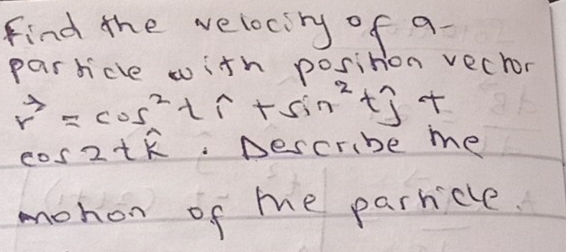 Find the velocity of a
particle with position vector
r⃗ = cos²t î + sin²t ĵ +
cos2t k̂ . Describe the
motion of the particle.